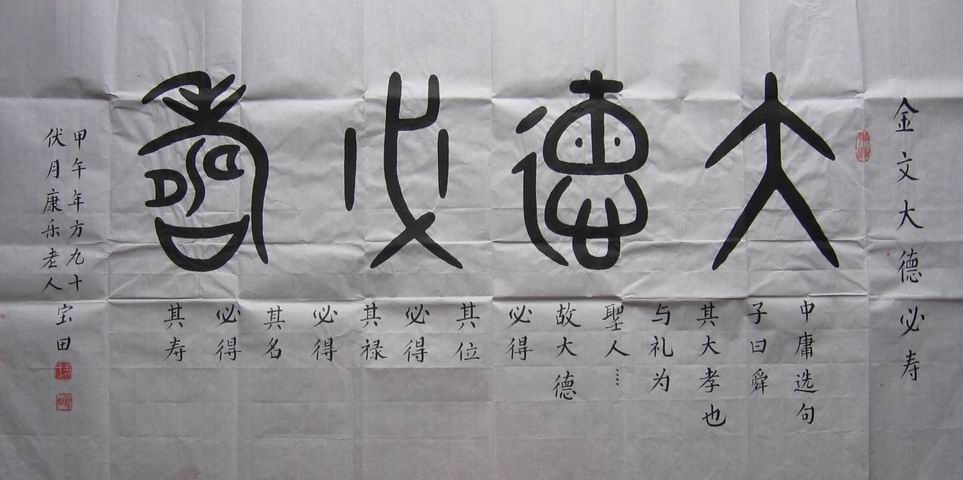 金文大德必寿
大德必壽
中庸选句
子曰舜
其大孝也
与礼为
聖人……
故大德
必得
其位
必得
其禄
必得
其名
必得
其寿
甲午年方九十
伏月康乐老人
宝田